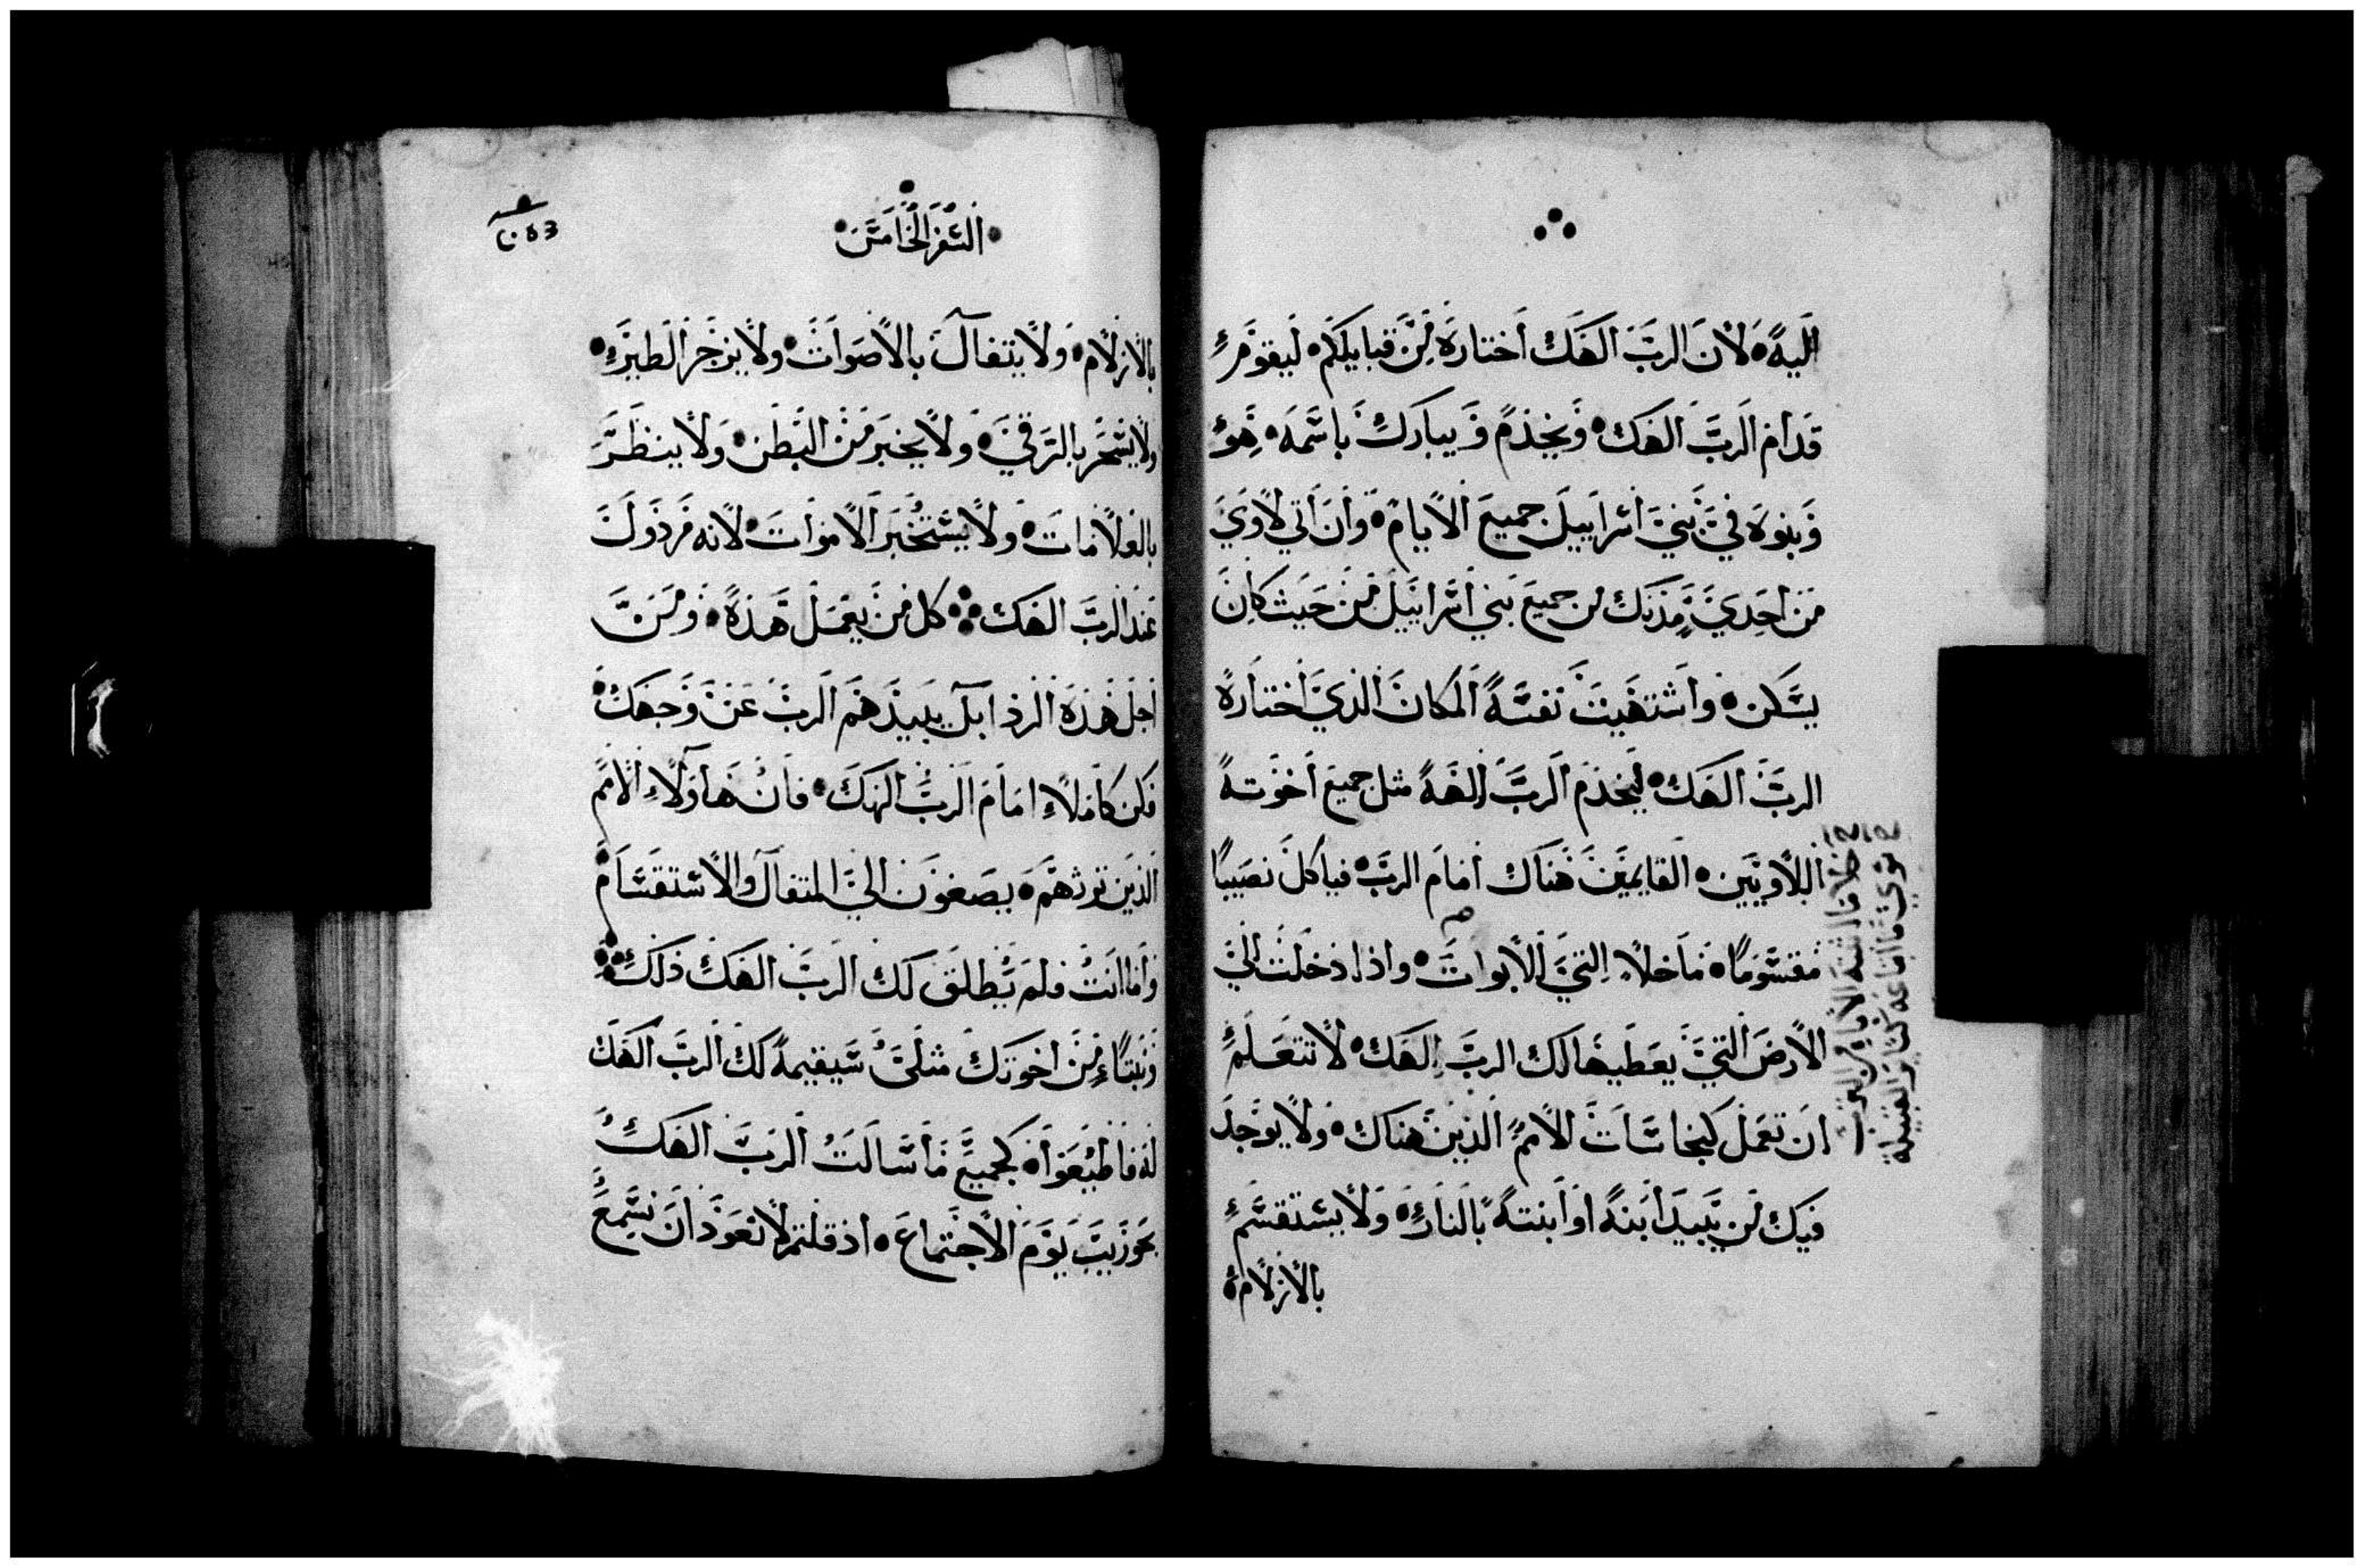 اليه لان الرب الهك اختاره من قبايلكم ليقوم
قدام الرب الهك ويخدم ويبارك باسمه هو
وبنوه في بني اسراييل جميع الايام وان اتي لاوي
من احدي مدنك من جميع بني اسراييل من حيث كان
يسكن واشتهيت نفسه المكان الذي اختاره
الرب الهك ليخدم الرب الهه مثل جميع اخوته
اللاويين القايمين هناك امام الرب فياكل نصيبا
مقسوما ما خلا التي الابوات واذا دخلت الي
الارض التي يعطيها لك الرب الهك لا تتعلم
ان تعمل كنجاسات الامم الذين هناك ولا يوجد
فيك من يبيد ابنه او ابنته بالنار ولا يستقسم
بالازلام
السفر الخامس
بالازلام ولا يتفال بالاصوات ولا يزجر الطير
ولا يسحر بالرقي ولا يخبر من البطن ولا ينظر
بالعلامات ولا يستخبر الاموات لانه مرذول
عند الرب الهك كل من يعمل هذه ومن
اجل هذه الرذايل يبيدهم الرب عن وجهك
فكن كاملا امام الرب الهك فان هاولاء الامم
الذين ترثهم يصغون الي المتفال والاستقسام
واما انت فلم يطلق لك الرب الهك ذلك
ونبيا من اخوتك مثلي سيقيمه لك الرب الهك
له فاطيعوا كجميع ما سالت الرب الهك
بحوزيب يوم الاجتماع اذ قلتم لا نعود ان نسمع